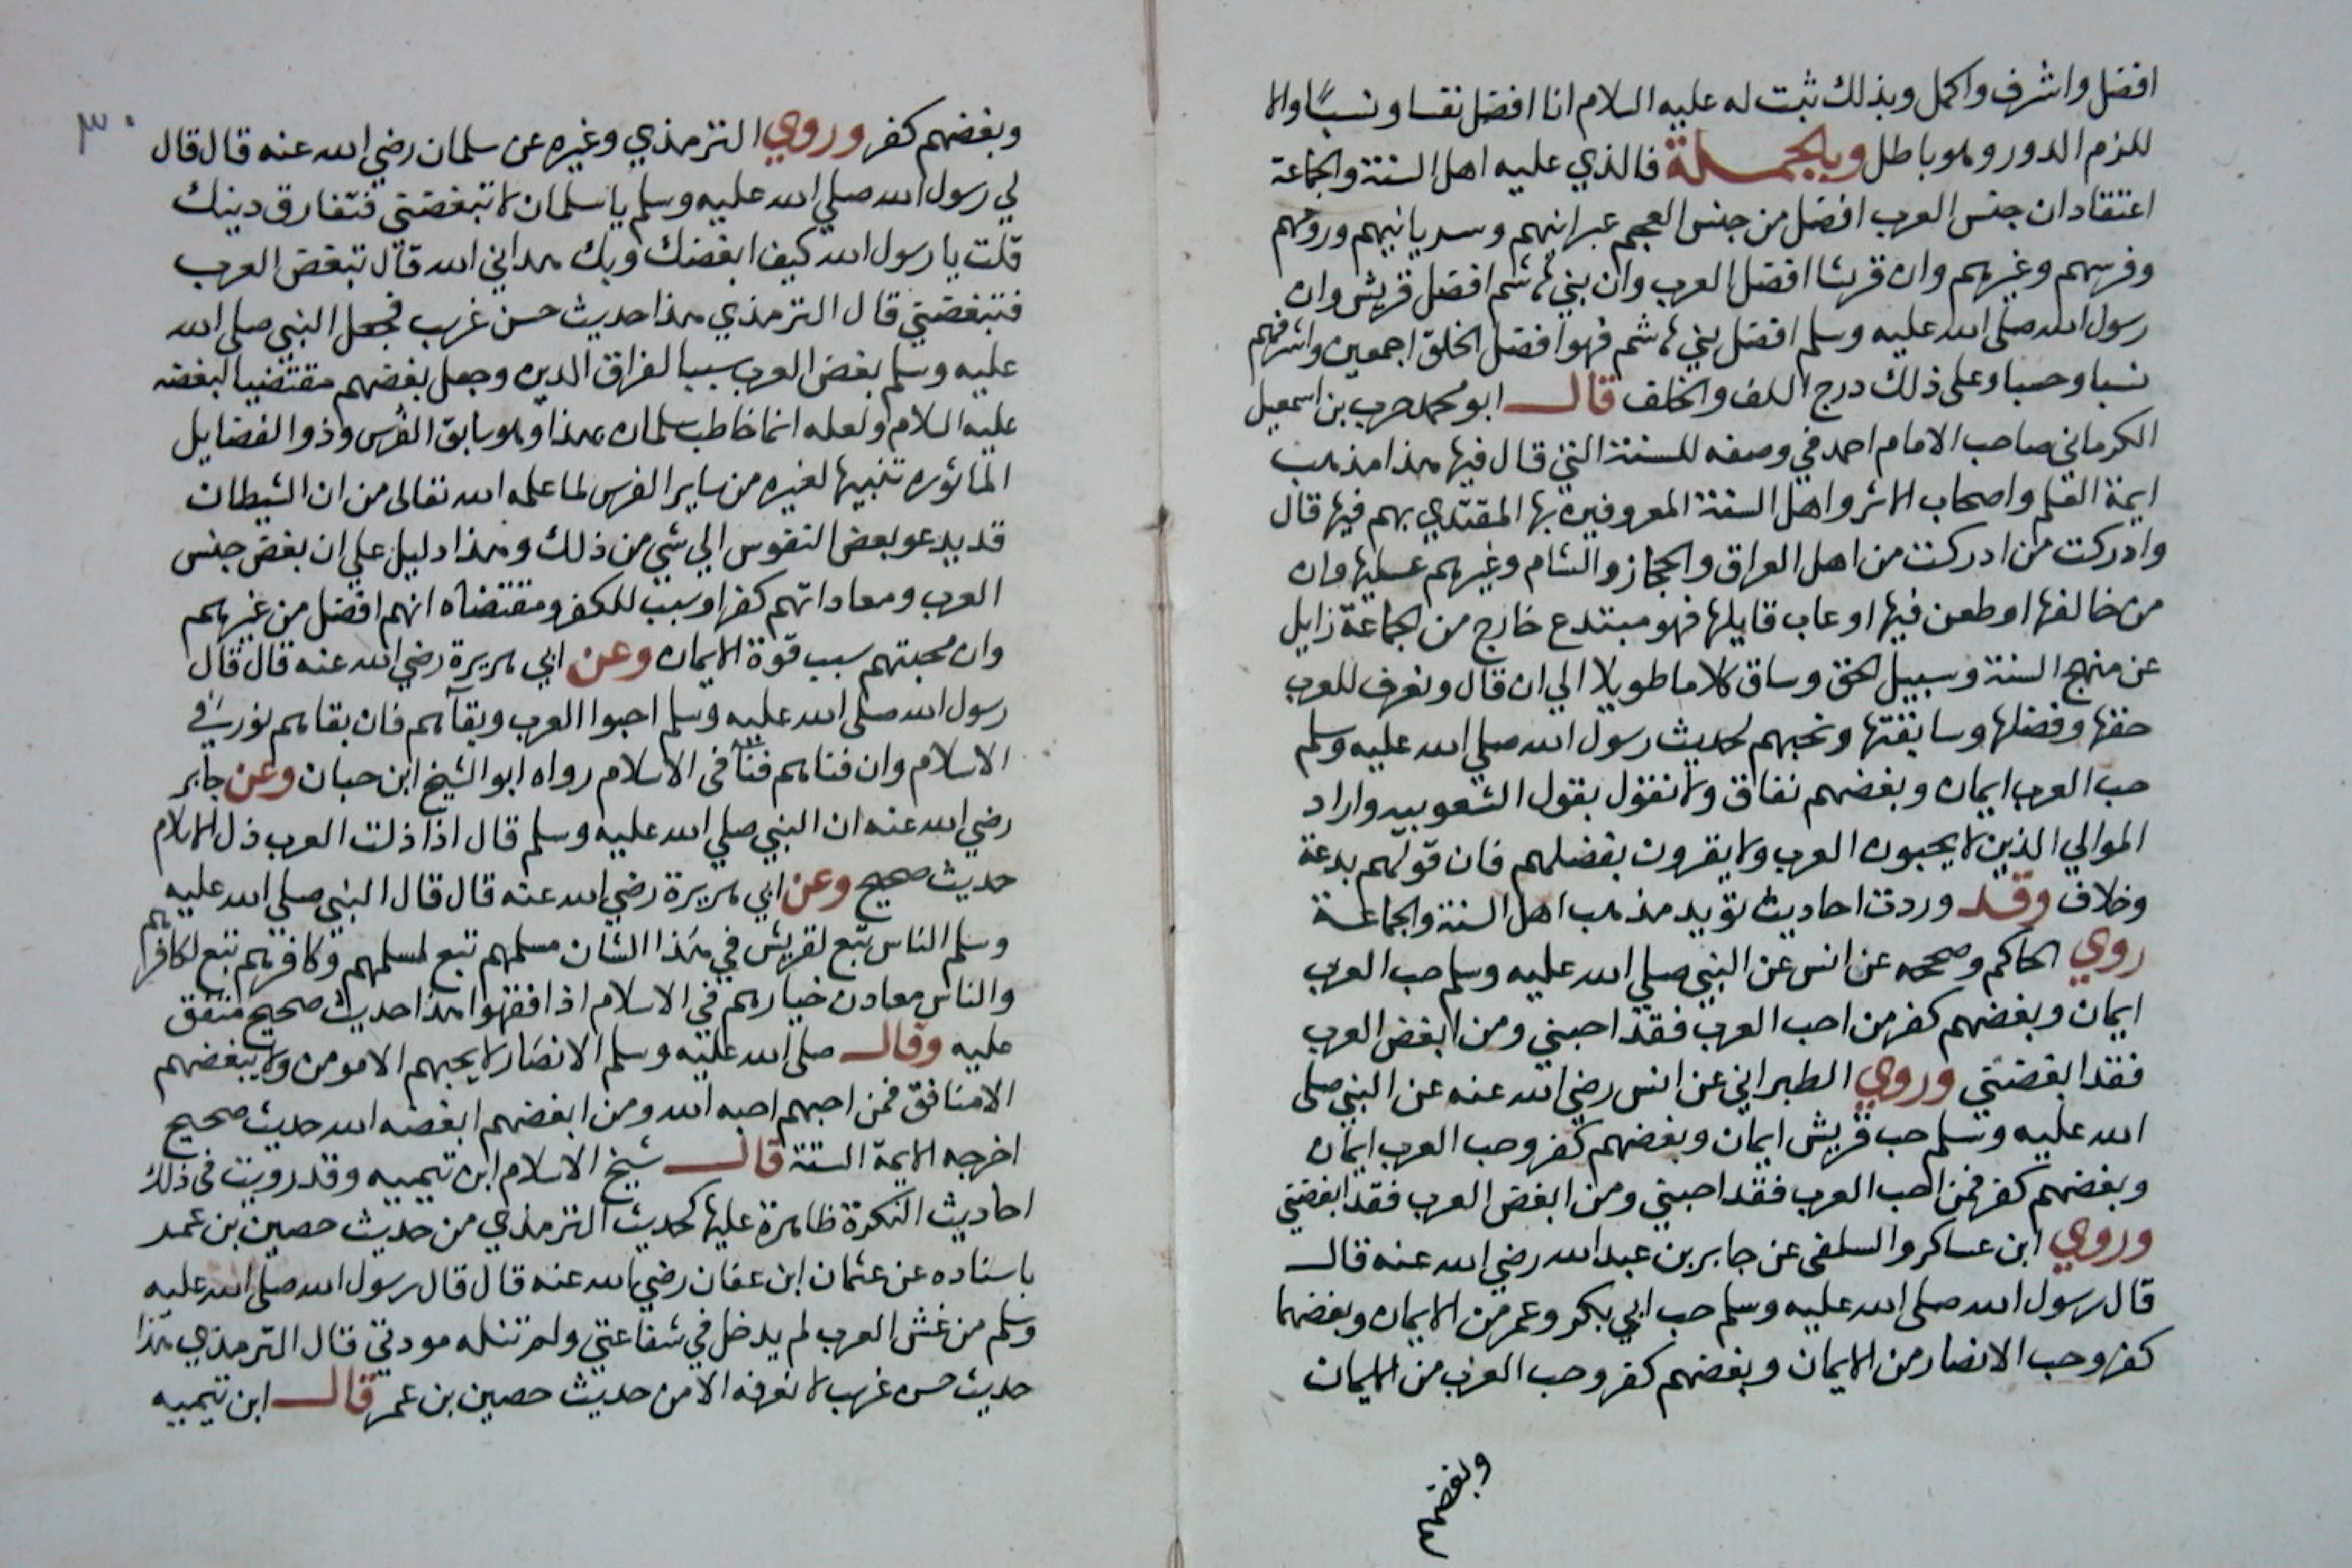 افضل واشرف واكمل وبذلك ثبت له عليه السلام انا افضل نفسا ونسبًا والا
للزم الدور وهو باطل وبالجملة فالذي عليه اهل السنة والجماعة
اعتقاد ان جنس العرب افضل من جنس العجم عبرانيهم وسريانيهم ورومهم
وفرسهم وغيرهم وان قريشا افضل العرب وان بني هاشم افضل قريش وان
رسول الله صلى الله عليه وسلم افضل بني هاشم فهو افضل الخلق اجمعين واشرفهم
نسبا وحسبا وعلى ذلك درج السلف والخلف قال ابو محمد حرب بن اسمعيل
الكرماني صاحب الامام احمد في وصفه للسنة التي قال فيها هذا مذهب
ايمة العلم واصحاب الاثر واهل السنة المعروفين بها المقتدي بهم فيها قال
وادركت من ادركت من اهل العراق والحجاز والشام وغيرهم عليها وان
من خالفها او طعن فيها او عاب قايلها فهو مبتدع خارج من الجماعة زايل
عن منهج السنة وسبيل الحق وساق كلاما طويلا الي ان قال ونعرف للعرب
حقها وفضلها وسابقتها ونحبهم لحديث رسول الله صلي الله عليه وسلم
حب العرب ايمان وبغضهم نفاق ولا نقول بقول الشعوبيه واراد
الموالي الذين لا يحبون العرب ولا يقرون بفضلهم فان قولهم بدعة
وخلاف وقد وردت احاديث تؤيد مذهب اهل السنة والجماعة
روي الحاكم وصححه عن انس عن النبي صلي الله عليه وسلم حب العرب
ايمان وبغضهم كفر من احب العرب فقد احبني ومن ابغض العرب
فقد ابغضني وروي الطبراني عن انس رضي الله عنه عن النبي صلى
الله عليه وسلم حب قريش ايمان وبغضهم كفر وحب العرب ايمان
وبغضهم كفر فمن احب العرب فقد احبني ومن ابغض العرب فقد ابغضني
وروي ابن عساكر والسلفي عن جابر بن عبد الله رضي الله عنه قال
قال رسول الله صلى الله عليه وسلم حب ابي بكر وعمر من الايمان وبغضهما
كفر وحب الانصار من الايمان وبغضهم كفر وحب العرب من الايمان
وبغضهم
٣٠
وبغضهم كفر وروي الترمذي وغيره عن سلمان رضي الله عنه قال قال
لي رسول الله صلي الله عليه وسلم يا سلمان لا تبغضني فتفارق دينك
قلت يا رسول الله كيف ابغضك وبك هداني الله قال تبغض العرب
فتبغضني قال الترمذي هذا حديث حسن غريب فجعل النبي صلى الله
عليه وسلم بغض العرب سببا لفراق الدين وجعل بغضهم مقتضيا لبغضه
عليه السلام ولعله انما خاطب سلمان بهذا وهو سابق الفرس وذو الفضايل
الماثوره تنبيها لغيره من ساير الفرس لما علمه الله تعالى من ان الشيطان
قد يدعو بعض النفوس الي شي من ذلك وهذا دليل علي ان بغض جنس
العرب ومعاداتهم كفر او سبب للكفر ومقتضاه انهم افضل من غيرهم
وان محبتهم سبب قوة الايمان وعن ابي هريرة رضي الله عنه قال قال
رسول الله صلى الله عليه وسلم احبوا العرب وبقآهم فان بقاهم نور في
الاسلام وان فناهم فناً في الاسلام رواه ابو الشيخ ابن حبان وعن جابر
رضي الله عنه ان النبي صلي الله عليه وسلم قال اذا ذلت العرب ذل الاسلام
حديث صحيح وعن ابي هريرة رضي الله عنه قال قال النبي صلي الله عليه
وسلم الناس تبع لقريش في هذا الشان مسلمهم تبع لمسلمهم وكافرهم تبع لكافرهم
والناس معادن خيارهم في الاسلام اذا فقهوا هذا حديث صحيح متفق
عليه وقال صلى الله عليه وسلم الانصار لا يحبهم الا مومن ولا يبغضهم
الا منافق فمن احبهم احبه الله ومن ابغضهم ابغضه الله حديث صحيح
اخرجه الايمة الستة قال شيخ الاسلام ابن تيميه وقد رويت في ذلك
احاديث النكرة ظاهرة عليها كحديث الترمذي من حديث حصين بن عمر
باسناده عن عثمان ابن عفان رضي الله عنه قال قال رسول الله صلى الله عليه
وسلم من غش العرب لم يدخل في شفاعتي ولم تنله مودتي قال الترمذي هذا
حديث حسن غريب لا نعرفه الا من حديث حصين بن عمر قال ابن تيميه